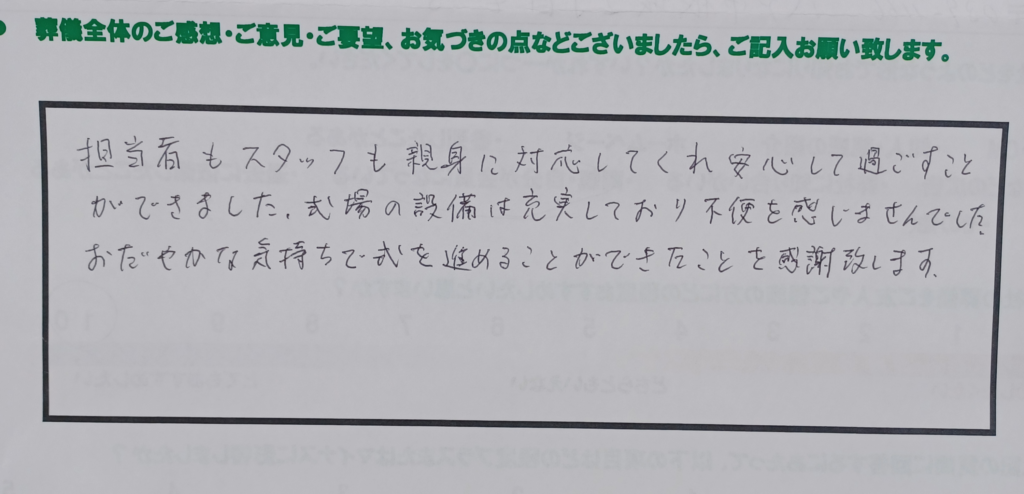 葬儀全体のご感想・ご意見・ご要望、お気づきの点などございましたら、ご記入お願い致します。
担当者もスタッフも親身に対応してくれ安心して過ごすこと
ができました。式場の設備は充実しており不便を感じませんでした。
おだやかな気持ちで式を進めることができたことを感謝致します。